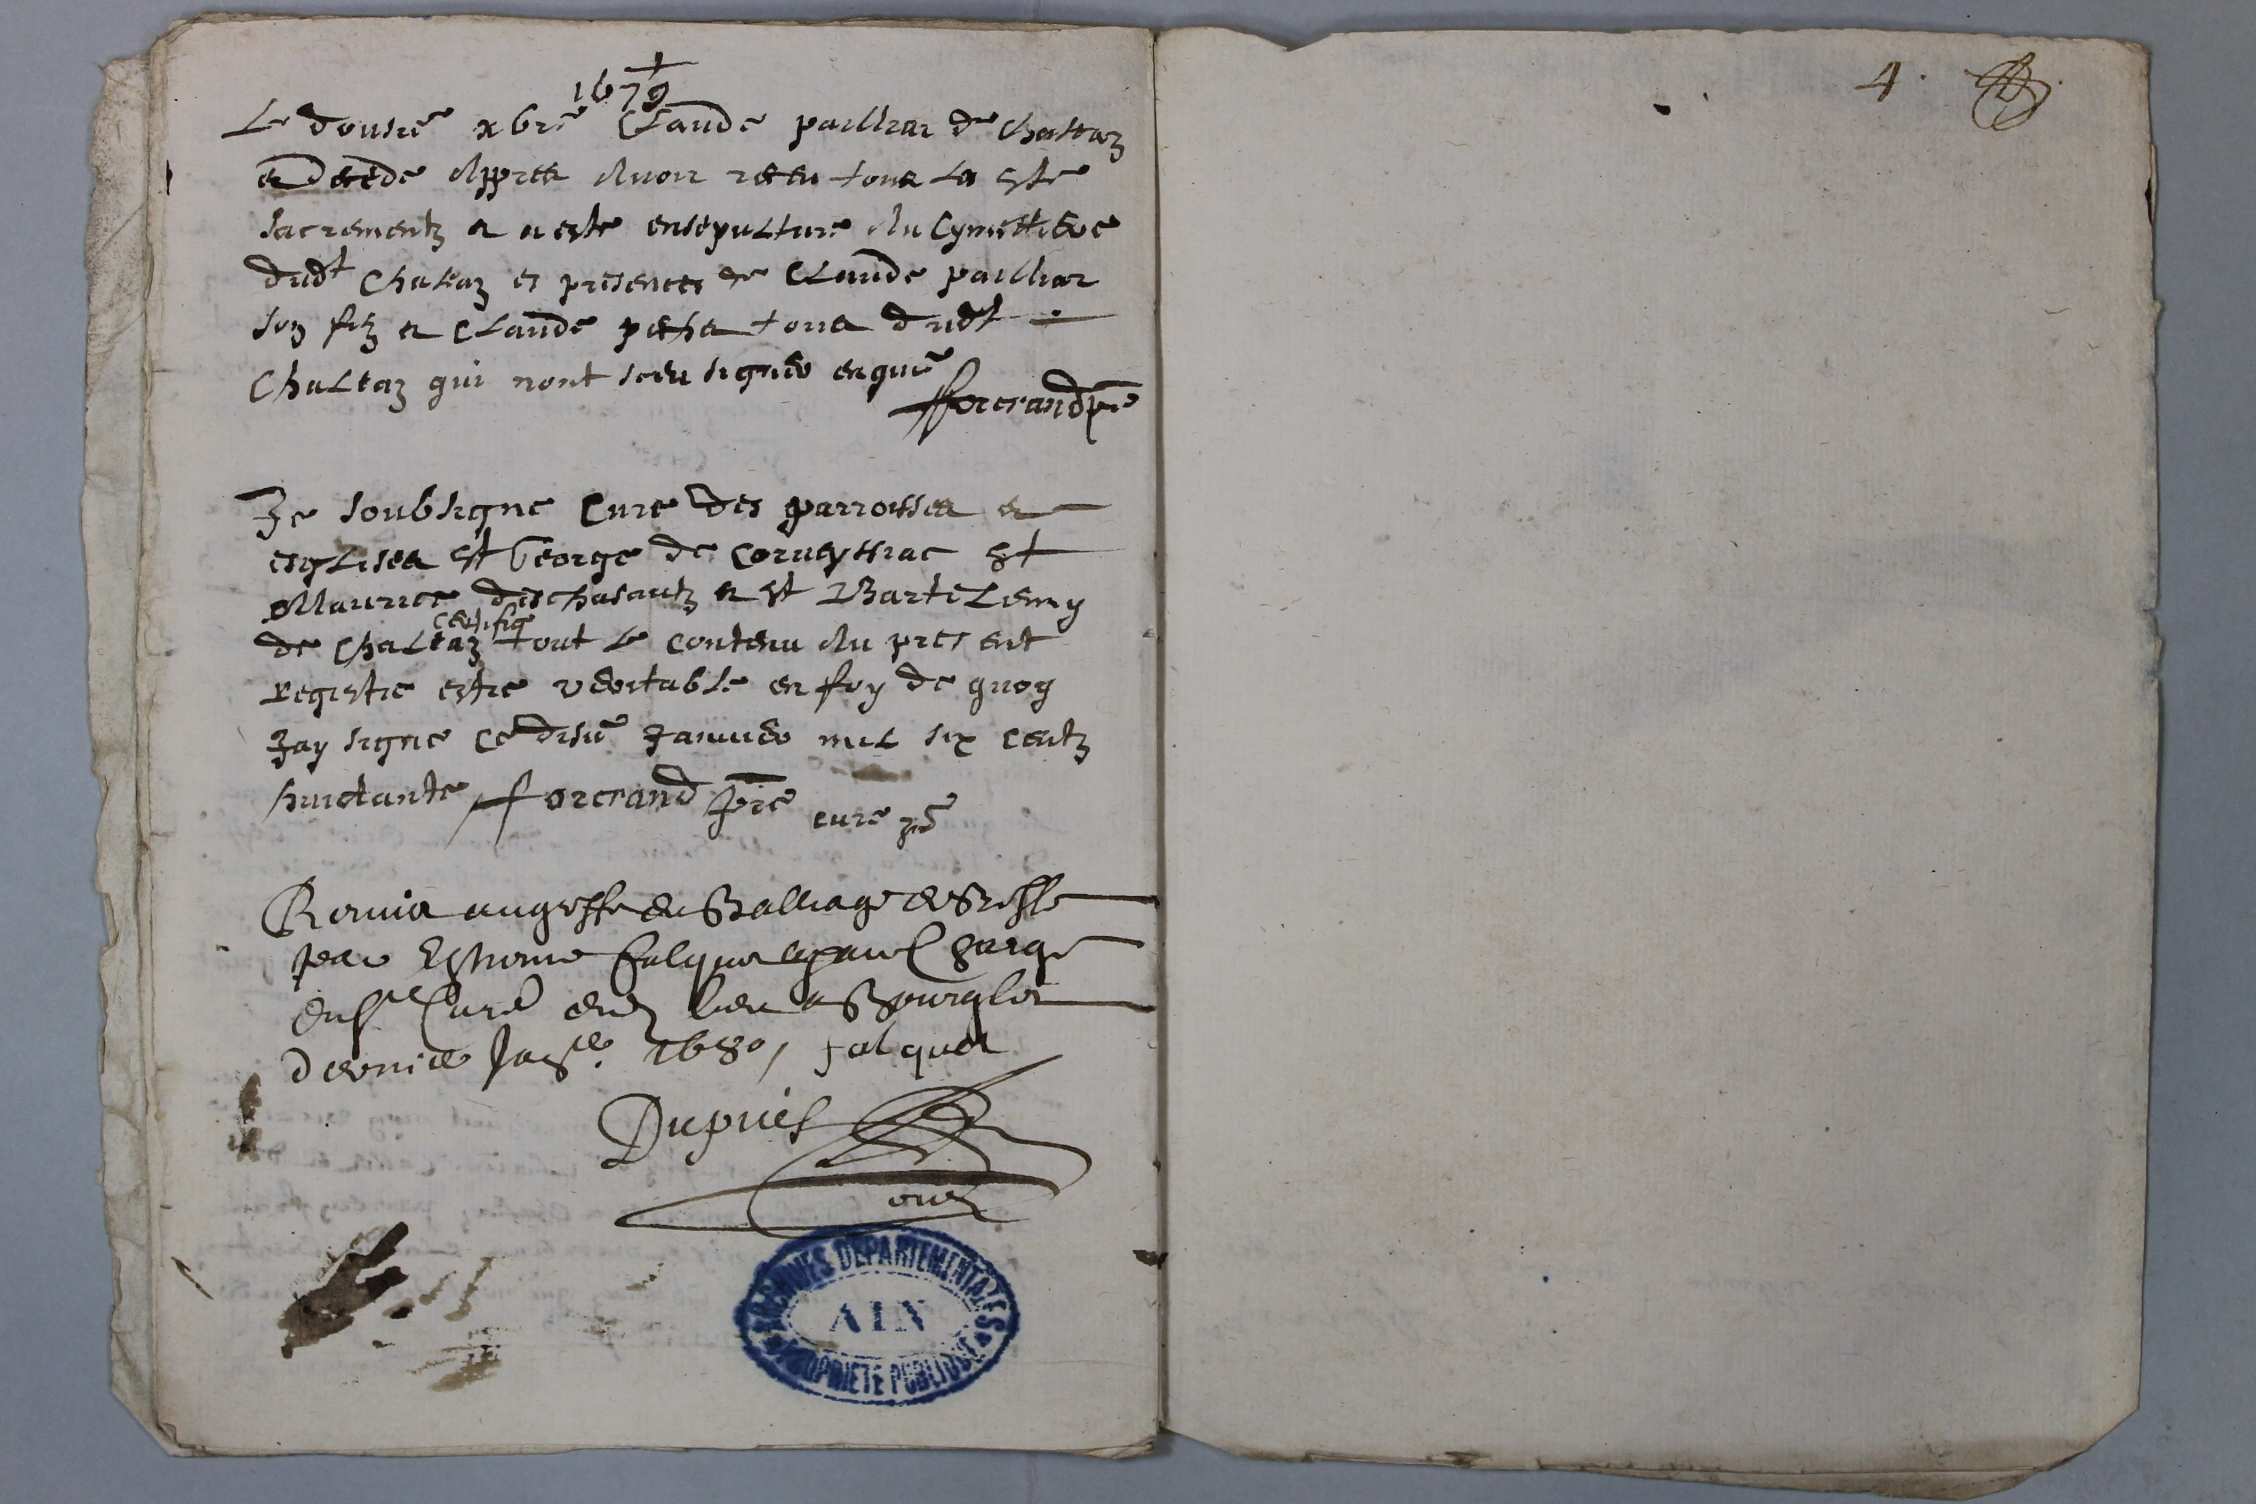 1679
Le dousie xbre Claude pailliar de Chaltaz
est decede Appres Avoir receu tous les Ste
sacrementz et a este ensepulture Au Cymettiere
dudt Chaltaz es presences de Claude pailliar
son filz et Claude tous dudt
Chaltaz qui nont sceu signer enquis
fforcrand pre
Je soubsigne Cure des parroisses et
esglises St George de Corveyssiac St
Maurice deschasautz et St Bartelemy
de Chaltaz certifie tout le contenu Au present
Registre estre veritable en foy de quoy
Jay signe Ce Janvier mil six centz
huictante fforcrand pre cure
Remis au greffe du Balliage de Bresse
Par Falque
Curé lieu a Bourg le
dernier Janer 1680, falque
Dupuis
4.
ARCHIVES DEPARTEMENTALES
AIN
PROPRIETE PUBLIQUE